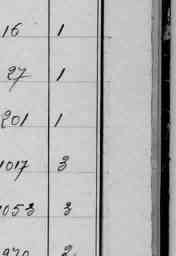 16 1
27 1
201 1
1017 3
1053 3
970 2